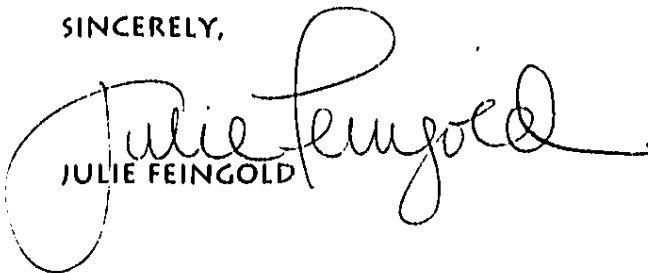 SINCERELY,
Julie Feingold
JULIE FEINGOLD